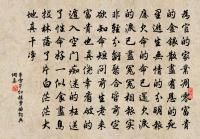 為官的家業凋零富貴
的金銀散盡有恩的死
裡逃生無情的分明報
應欠命的命已還欠淚
的淚已盡冤冤相報實
非輕分離聚合皆前定
欲知命短問前生老來
富貴也真僥倖看破的
遁入空門癡迷的枉送
了性命好一似食盡鳥
投林落了片白茫茫大
地真干淨